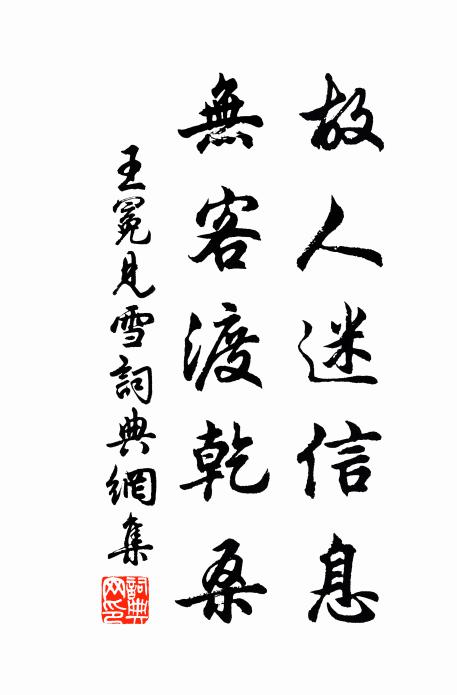 故人迷信息
無客渡乾桑
王冕見雪詞典網集
詞典網印